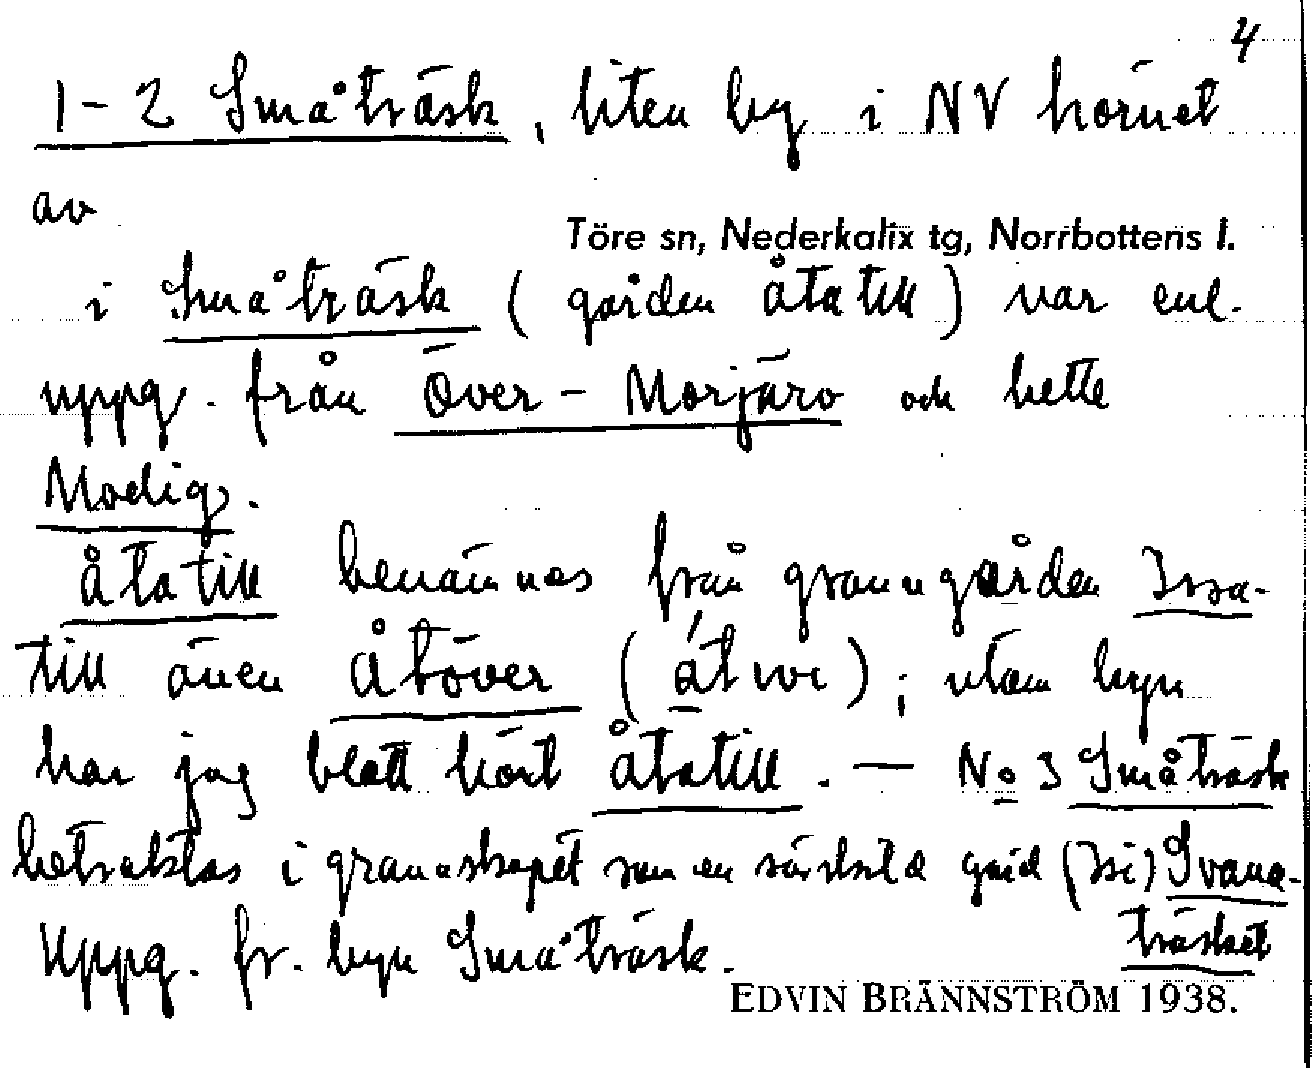 4
1-2 Småträsk, liten by i NV hörnet
av
Töre sn, Nederkalix tg, Norrbottens l.
i Småträsk (gården åta till) var enl.
uppg. från Över-Morjärv och hette
Modig.
Åta till benämnes från granngården
till även åtöver ( ); utom byn
har jag blott hört åtatill. — No 3 Småträsk
betraktas i grannskapet som en särskild gård Svana-
träsket
Uppg. fr. byn Småträsk.
EDVIN BRÄNNSTRÖM 1938.